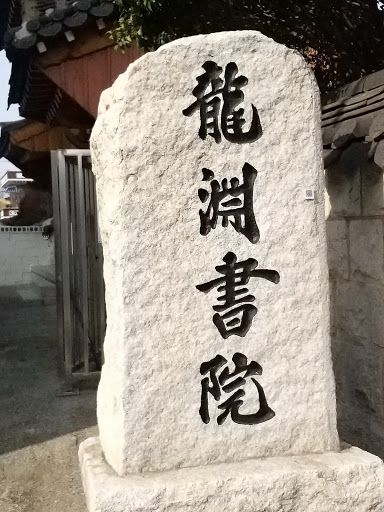 龍淵書院